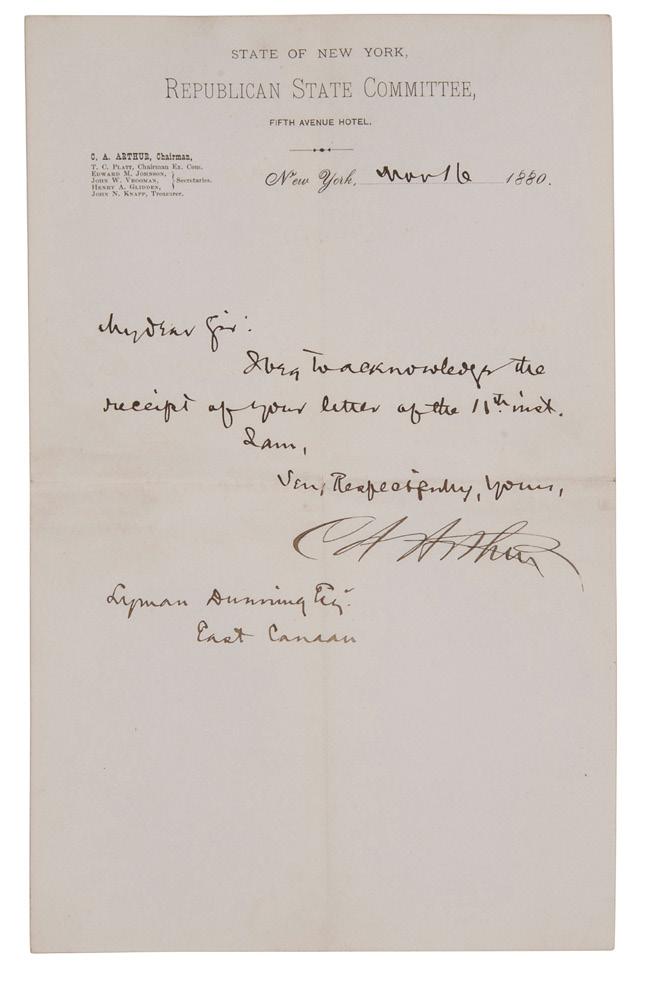 STATE OF NEW YORK,
REPUBLICAN STATE COMMITTEE,
FIFTH AVENUE HOTEL.
C. A. ARTHUR, Chairman,
T. C. PLATT, Chairman Ex. Com.
EDWARD M. JOHNSON,
JOHN W. VROOMAN, } Secretaries.
HENRY A. GLIDDEN,
JOHN N. KNAPP, Treasurer.
New York, Nov 16 1880.
My dear Sir:
I beg to acknowledge the
receipt of your letter of the 11th inst.
I am,
Very Respectfully, Yours,
C A Arthur
Lyman Dunning Esq.
East Canaan